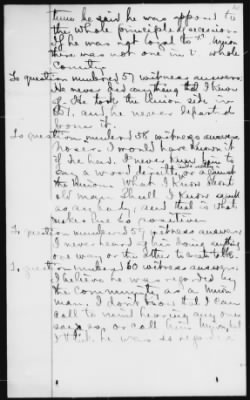 time he said he was opposed to
the whole principle of secession
If he was not loyal to the Union
there was not one in the whole
County.
To question numbered 57 witness answers
No never did anything that I know
of. He took the Union side in
'61, and he never departed
from it.
To question number 58 witness answers
No sir. I would have known it
if he had. I never knew him to
say a word derogatory or against
the Union. What I know about
old man Shull I know as well
as anybody and that is what
makes me so positive
To question numbered 59 witness answers
I never heard of his doing anything
one way or the other
To question number 60 witness answers.
I believe he was regarded by
the Community as a Union
man. I don't know that I can
call to mind hearing any one
say so or call him
I think he was so